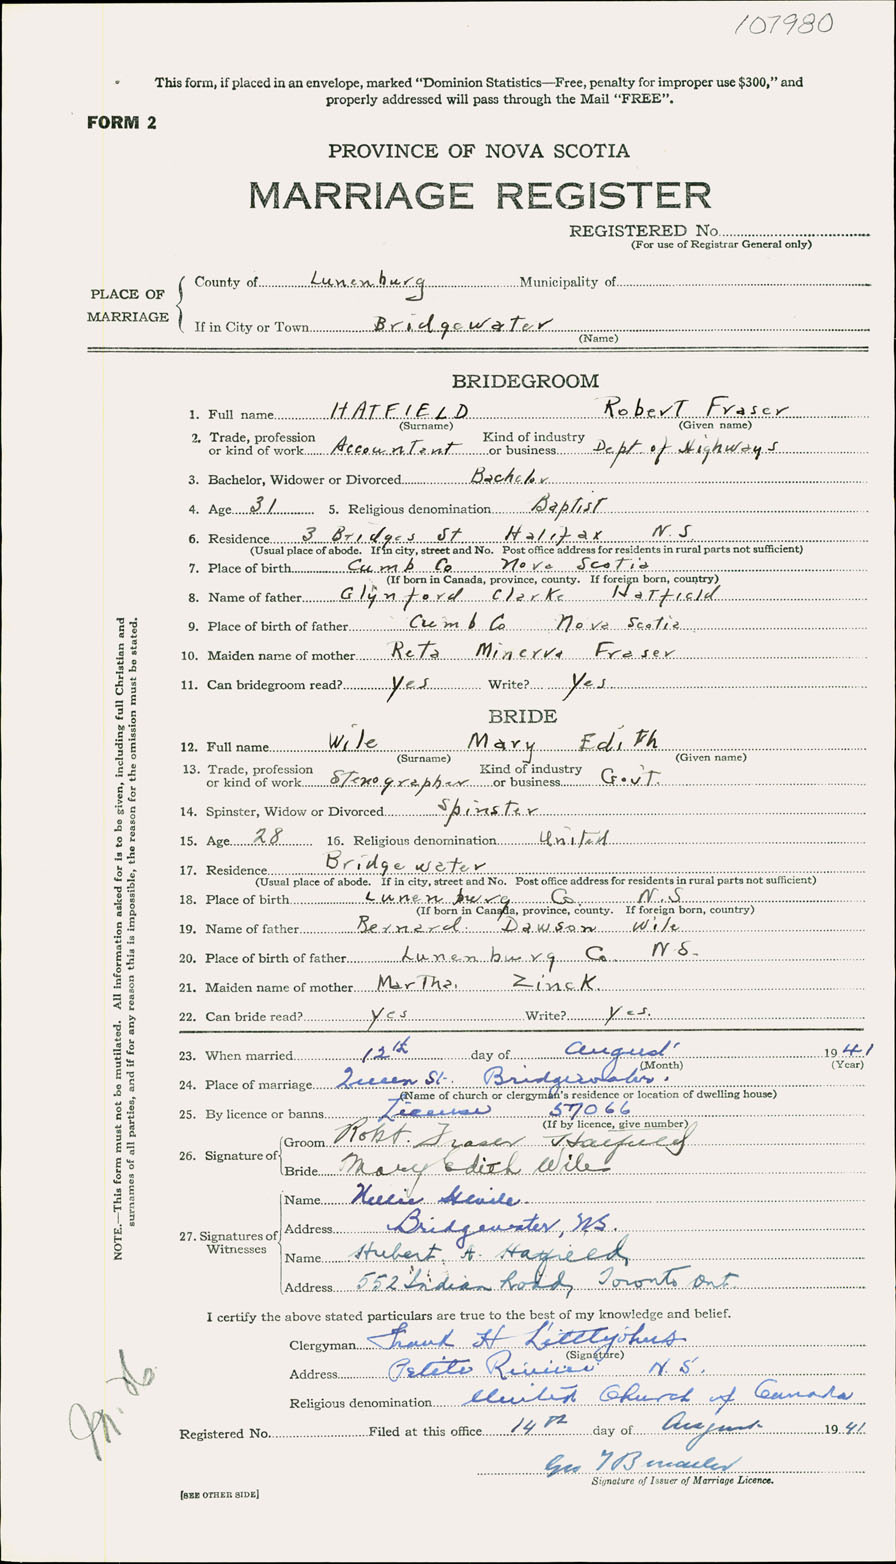 107980
This form, if placed in an envelope, marked "Dominion Statistics—Free, penalty for improper use $300," and
properly addressed will pass through the Mail "FREE".
FORM 2
PROVINCE OF NOVA SCOTIA
MARRIAGE REGISTER
REGISTERED No.
(For use of Registrar General only)
PLACE OF MARRIAGE
County of Lunenburg Municipality of
If in City or Town Bridgewater
(Name)
BRIDEGROOM
1. Full name HATFIELD Robert Fraser
(Surname) (Given name)
2. Trade, profession or kind of work Accountant Kind of industry or business Dept of Highways
3. Bachelor, Widower or Divorced Bachelor
4. Age 31 5. Religious denomination Baptist
6. Residence 3 Bridges St Halifax N.S.
(Usual place of abode. If in city, street and No. Post office address for residents in rural parts not sufficient)
7. Place of birth Cumb Co Nova Scotia
(If born in Canada, province, county. If foreign born, country)
8. Name of father Glynford Clarke Hatfield
9. Place of birth of father Cumb Co Nova Scotia
10. Maiden name of mother Reta Minerva Fraser
11. Can bridegroom read? Yes Write? Yes
BRIDE
12. Full name Wile Mary Edith
(Surname) (Given name)
13. Trade, profession or kind of work Stenographer Kind of industry or business Gov't.
14. Spinster, Widow or Divorced Spinster
15. Age 28 16. Religious denomination United
17. Residence Bridgewater
(Usual place of abode. If in city, street and No. Post office address for residents in rural parts not sufficient)
18. Place of birth Lunenburg Co. N.S
(If born in Canada, province, county. If foreign born, country)
19. Name of father Bernard Dawson Wile
20. Place of birth of father Lunenburg Co. N.S.
21. Maiden name of mother Martha Zinck
22. Can bride read? Yes Write? Yes.
23. When married 12th day of August 1941
(Month) (Year)
24. Place of marriage Queen St. Bridgewater.
(Name of church or clergyman's residence or location of dwelling house)
25. By licence or banns License 57066
(If by licence, give number)
26. Signature of
Groom Robt. Fraser Hatfield
Bride Mary Edith Wile
27. Signatures of Witnesses
Name
Address Bridgewater, N.S.
Name Hubert A. Hatfield
Address 552 Indian Road, Toronto Ont.
I certify the above stated particulars are true to the best of my knowledge and belief.
Clergyman Frank H Littlejohns
(Signature)
Address Petite Riviere N.S.
Religious denomination United Church of Canada
Registered No. Filed at this office 14th day of August 1941
Signature of Issuer of Marriage Licence.
[SEE OTHER SIDE]
NOTE.—This form must not be mutilated. All information asked for is to be given, including full Christian and
surnames of all parties, and if for any reason this is impossible, the reason for the omission must be stated.